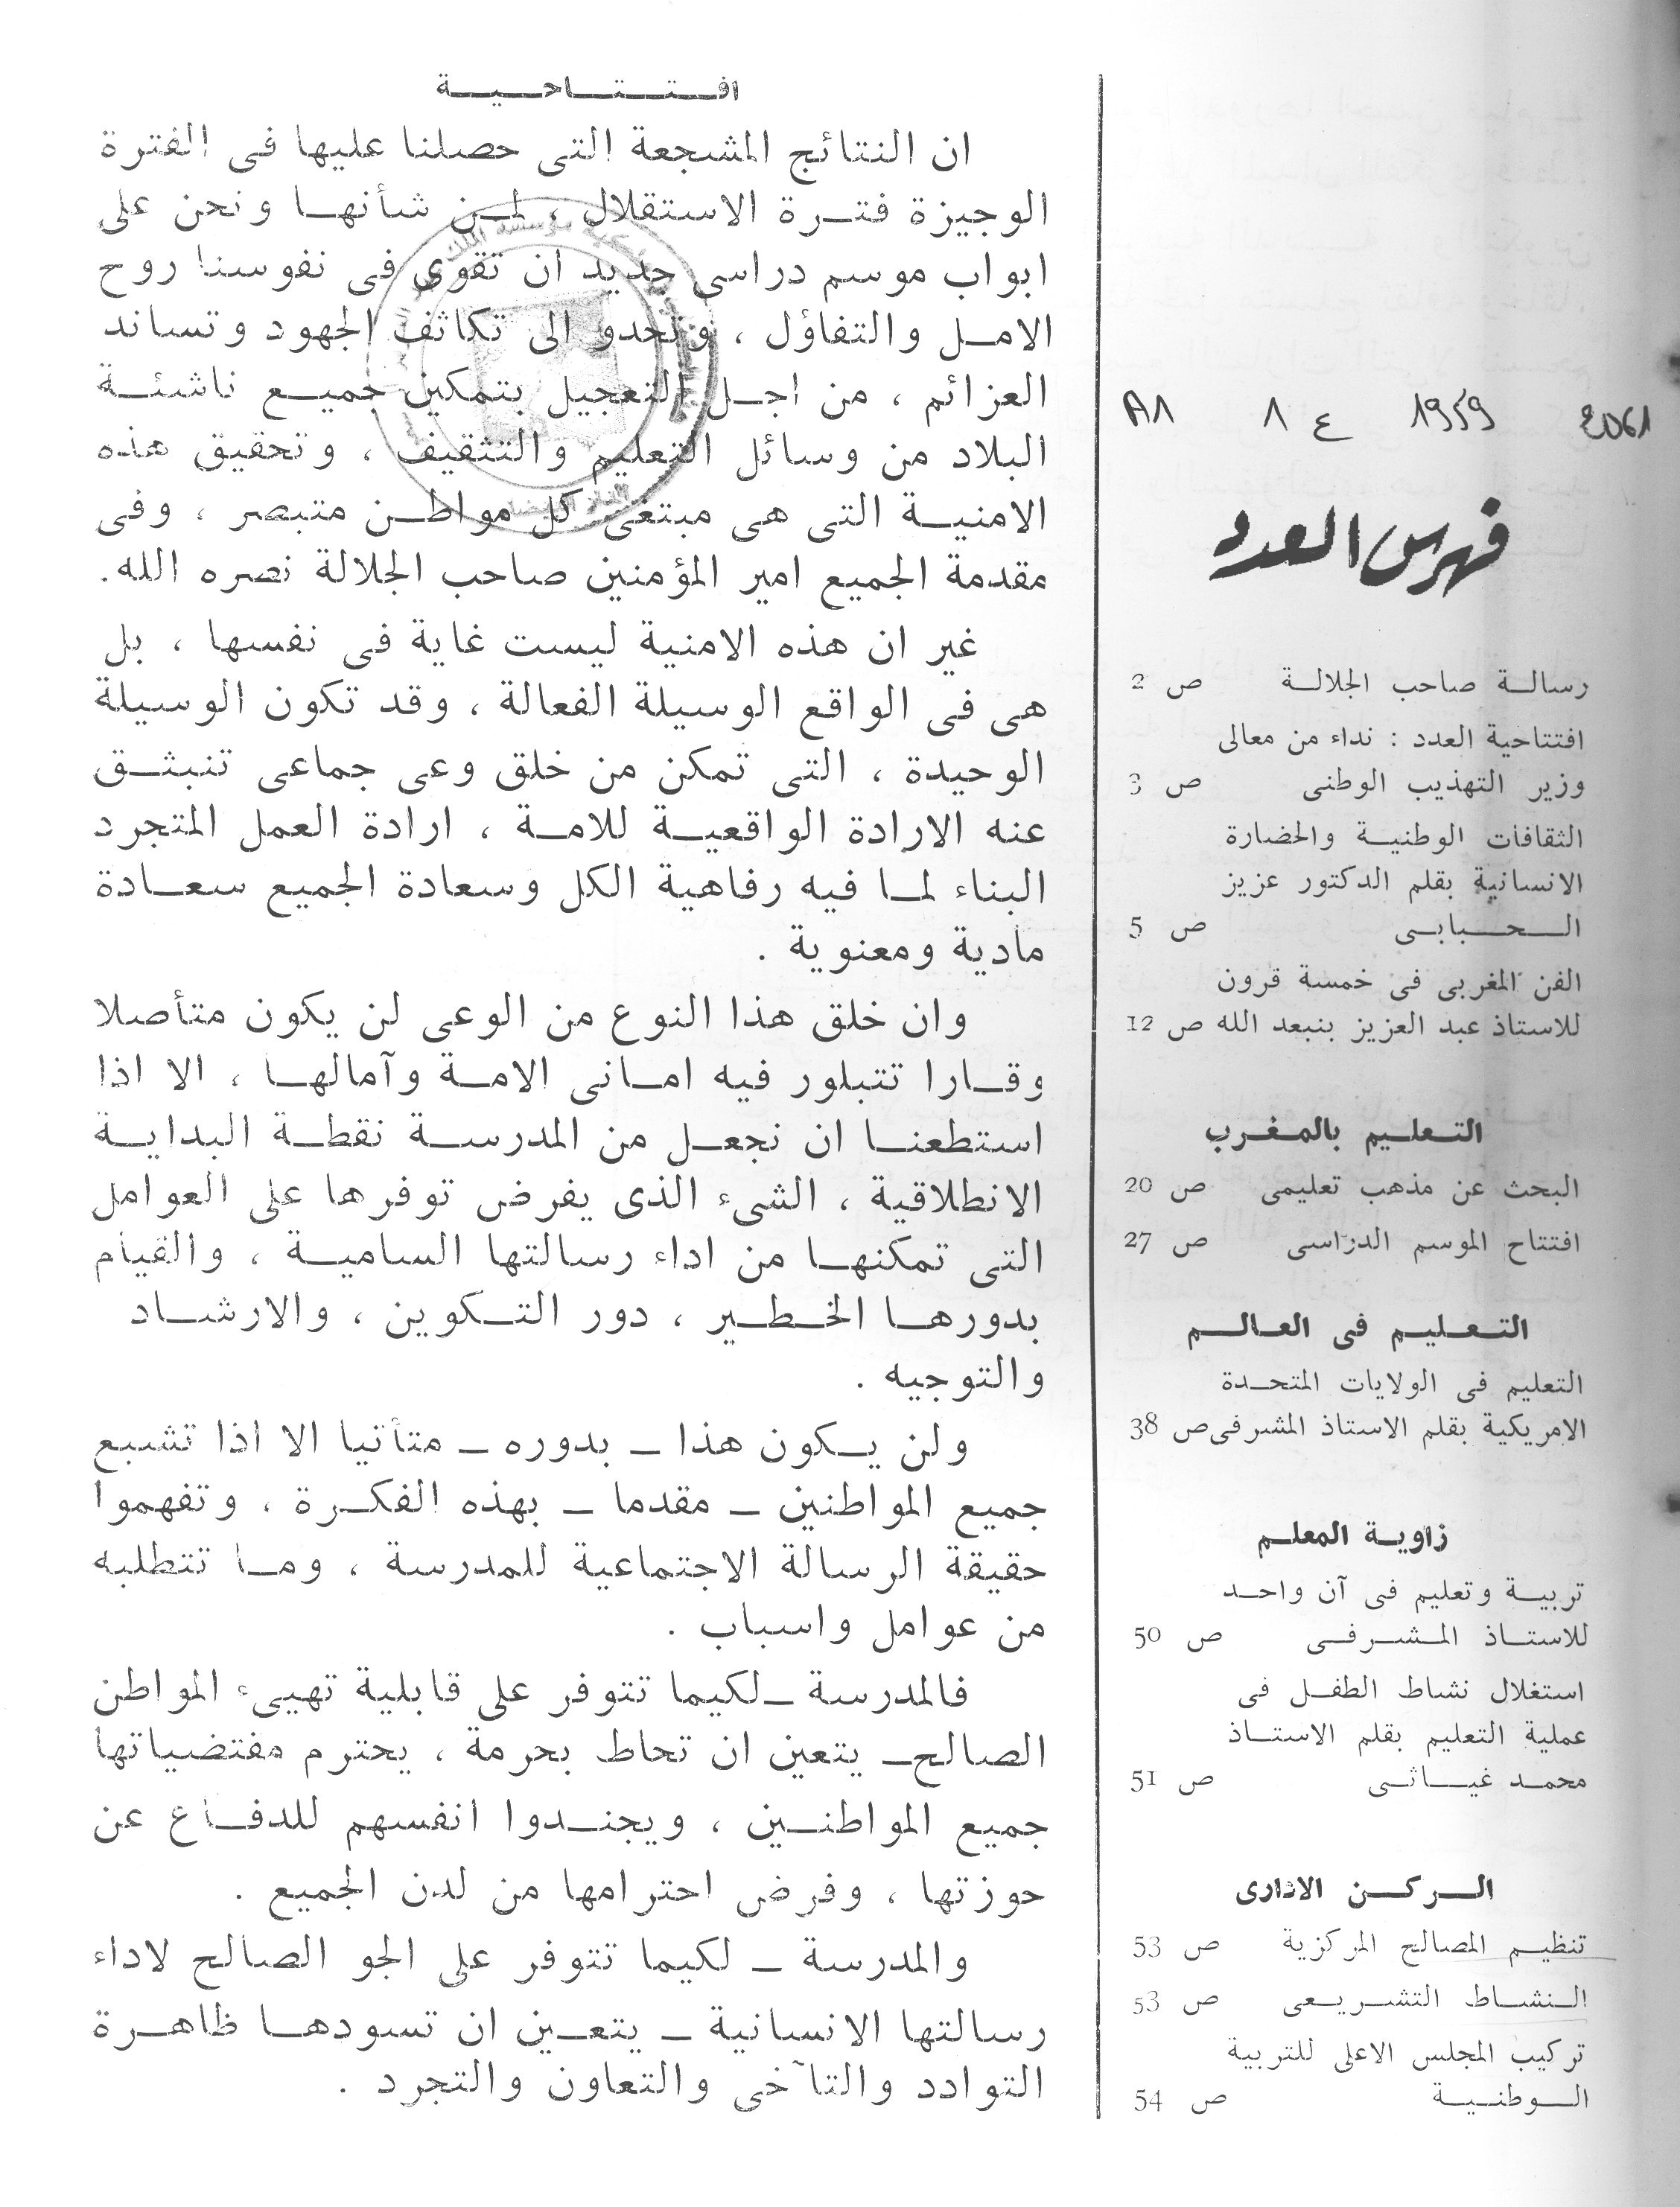 2061 1959 ع 1 A1
فهرس العدد
رسالة صاحب الجلالة ص 2
افتتاحية العدد : نداء من معالى
وزير التهذيب الوطنى ص 3
الثقافات الوطنية والحضارة
الانسانية بقلم الدكتور عزيز
الحبابى ص 5
الفن المغربى فى خمسة قرون
للاستاذ عبد العزيز بنبعد الله ص 12
التعليم بالمغرب
البحث عن مذهب تعليمى ص 20
افتتاح الموسم الدراسى ص 27
التعليم فى العالم
التعليم فى الولايات المتحدة
الامريكية بقلم الاستاذ المشرفى ص 38
زاوية المعلم
تربية وتعليم فى آن واحد
للاستاذ المشرفى ص 50
استغلال نشاط الطفل فى
عملية التعليم بقلم الاستاذ
محمد غياثى ص 51
الركن الادارى
تنظيم المصالح المركزية ص 53
النشاط التشريعى ص 53
تركيب المجلس الاعلى للتربية
الوطنية ص 54
افتتاحية
ان النتائج المشجعة التى حصلنا عليها فى الفترة
الوجيزة فترة الاستقلال ، لمن شأنها ونحن على
ابواب موسم دراسى جديد ان تقوى فى نفوسنا روح
الامل والتفاؤل ، وتحدو الى تكاثف الجهود وتساند
العزائم ، من اجل التعجيل بتمكين جميع ناشئة
البلاد من وسائل التعليم والتثقيف ، وتحقيق هذه
الامنية التى هى مبتغى كل مواطن متبصر ، وفى
مقدمة الجميع امير المؤمنين صاحب الجلالة نصره الله.
غير ان هذه الامنية ليست غاية فى نفسها ، بل
هى فى الواقع الوسيلة الفعالة ، وقد تكون الوسيلة
الوحيدة ، التى تمكن من خلق وعى جماعى تنبثق
عنه الارادة الواقعية للامة ، ارادة العمل المتجرد
البناء لما فيه رفاهية الكل وسعادة الجميع سعادة
مادية ومعنوية .
وان خلق هذا النوع من الوعى لن يكون متأصلا
وقارا تتبلور فيه امانى الامة وآمالها ، الا اذا
استطعنا ان نجعل من المدرسة نقطة البداية
الانطلاقية ، الشىء الذى يفرض توفرها على العوامل
التى تمكنها من اداء رسالتها السامية ، والقيام
بدورها الخطير ، دور التكوين ، والارشاد
والتوجيه .
ولن يكون هذا ــ بدوره ــ متأتيا الا اذا تشبع
جميع المواطنين ــ مقدما ــ بهذه الفكرة ، وتفهموا
حقيقة الرسالة الاجتماعية للمدرسة ، وما تتطلبه
من عوامل واسباب .
فالمدرسة ــ لكيما تتوفر على قابلية تهيىء المواطن
الصالح ــ يتعين ان تحاط بحرمة ، يحترم مقتضياتها
جميع المواطنين ، ويجندوا انفسهم للدفاع عن
حوزتها ، وفرض احترامها من لدن الجميع .
والمدرسة ــ لكيما تتوفر على الجو الصالح لاداء
رسالتها الانسانية ــ يتعين ان تسودها ظاهرة
التوادد والتآخى والتعاون والتجرد .